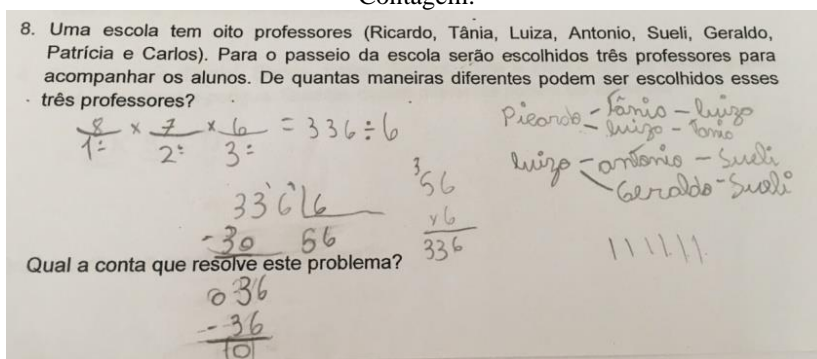 Contagem.
8. Uma escola tem oito professores (Ricardo, Tânia, Luiza, Antonio, Sueli, Geraldo,
Patrícia e Carlos). Para o passeio da escola serão escolhidos três professores para
acompanhar os alunos. De quantas maneiras diferentes podem ser escolhidos esses
três professores?
8/1º × 7/2º × 6/3º = 336 ÷ 6
Ricardo - Tânia - luiza
- luiza - Tania
luiza - antonio - Sueli
Geraldo - Sueli
336 6
- 30 56
036
- 36
0
3
56
x6
336
Qual a conta que resolve este problema?
| | | | | |